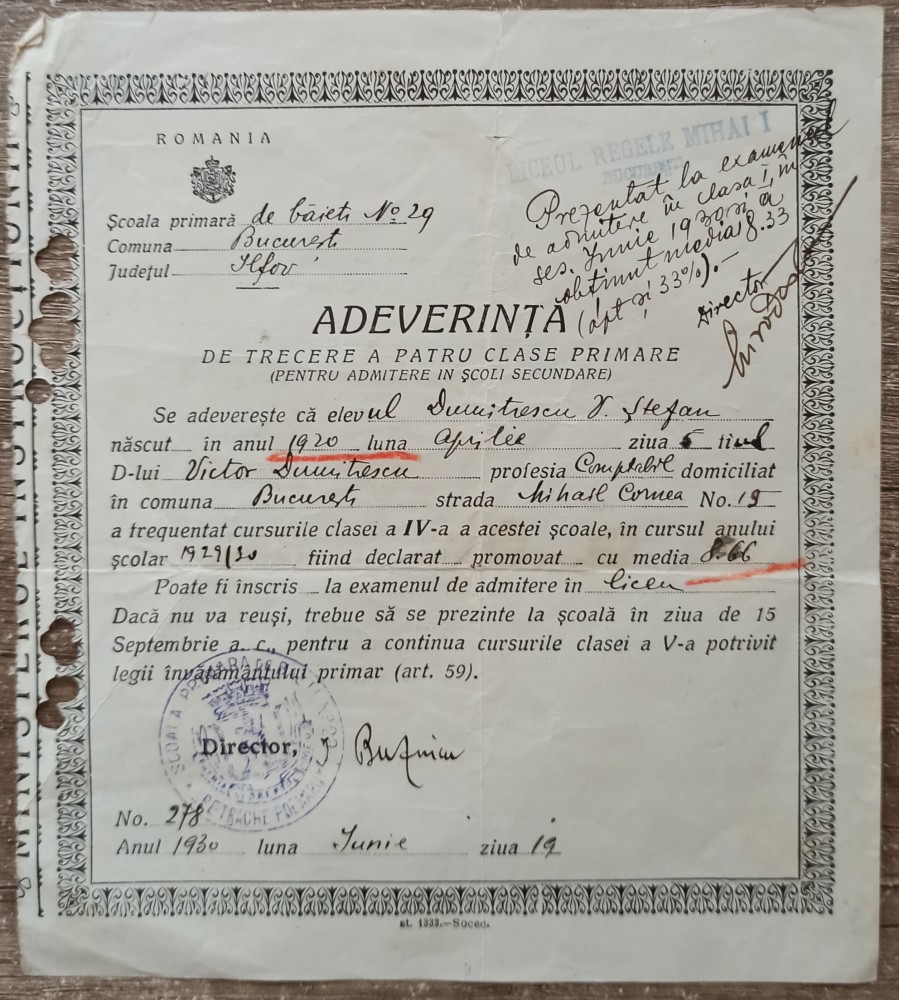 ROMANIA
LICEUL REGELE MIHAI I
BUCUREȘTI
Școala primară de băieti No 29
Comuna București
Județul Ilfov
Prezentat la examenul
de admitere în clasa I, în
ses. Iunie 1930 și a
obținut media 8.33
(opt și 33%).-
Director
ADEVERINȚA
DE TRECERE A PATRU CLASE PRIMARE
(PENTRU ADMITERE IN ȘCOLI SECUNDARE)
Se adeverește că elevul Dumitrescu V. Ștefan
născut în anul 1920 luna Aprilie ziua 5 fiul
D-lui Victor Dumitrescu profesia Comptabil domiciliat
în comuna București strada Mihail Cornea No. 15
a frequentat cursurile clasei a IV-a a acestei școale, în cursul anului
școlar 1929/30 fiind declarat promovat cu media 8.66
Poate fi înscris la examenul de admitere în liceu
Dacă nu va reuși, trebue să se prezinte la școală în ziua de 15
Septembrie a. c., pentru a continua cursurile clasei a V-a potrivit
legii învățământului primar (art. 59).
Director,
No. 278
Anul 1930 luna Iunie ziua 19
st. 1333.—Socec.